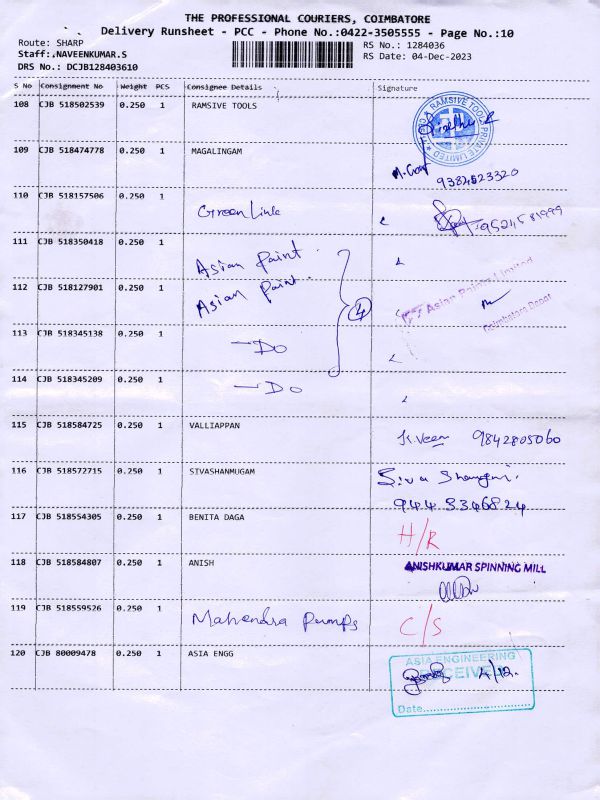 THE PROFESSIONAL COURIERS, COIMBATORE
Delivery Runsheet - PCC - Phone No.:0422-3505555 - Page No.:10
Route: SHARP
RS No.: 1284036
Staff:.NAVEENKUMAR.S
RS Date: 04-Dec-2023
DRS No.: DCJB128403610
S No Consignment No Weight PCS Consignee Details Signature
108 CJB 518502539 0.250 1 RAMSIVE TOOLS
RAMSIVE TOOLS PRIVATE LIMITED
109 CJB 518474778 0.250 1 MAGALINGAM
9384523320
110 CJB 518157506 0.250 1 Green Link 9524581999
111 CJB 518350418 0.250 1 Asian Paint.
112 CJB 518127901 0.250 1 Asian Paint.
4
Asian Paints Limited
Coimbatore Depot
113 CJB 518345138 0.250 1 —Do
114 CJB 518345209 0.250 1 —Do
115 CJB 518584725 0.250 1 VALLIAPPAN K.Veen 9842805060
116 CJB 518572715 0.250 1 SIVASHANMUGAM Siva
9445346824
117 CJB 518554305 0.250 1 BENITA DAGA H/R
118 CJB 518584807 0.250 1 ANISH ANISHKUMAR SPINNING MILL
119 CJB 518559526 0.250 1 Mahendra Pumps C/S
120 CJB 80009478 0.250 1 ASIA ENGG
ASIA ENGINEERING
RECEIVED
4/12.
Date